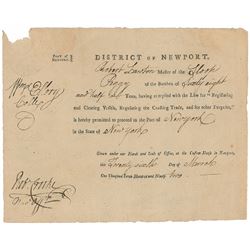 Port of
Newport.
DISTRICT OF NEWPORT.
Robert Lawton Master of the Sloop
Peggy of the Burthen of Sixty eight
and half Tons, having complied with the Law for "Registering
and Clearing Vessels, Regulating the Coasting Trade, and for other Purposes,"
is hereby permitted to proceed to the Port of New york
in the State of New york
Given under our Hands and Seals of Office, at the Custom-House in Newport,
the Twenty sixth Day of March
One Thousand Seven Hundred and Ninety two
Wm Ellery
Collr